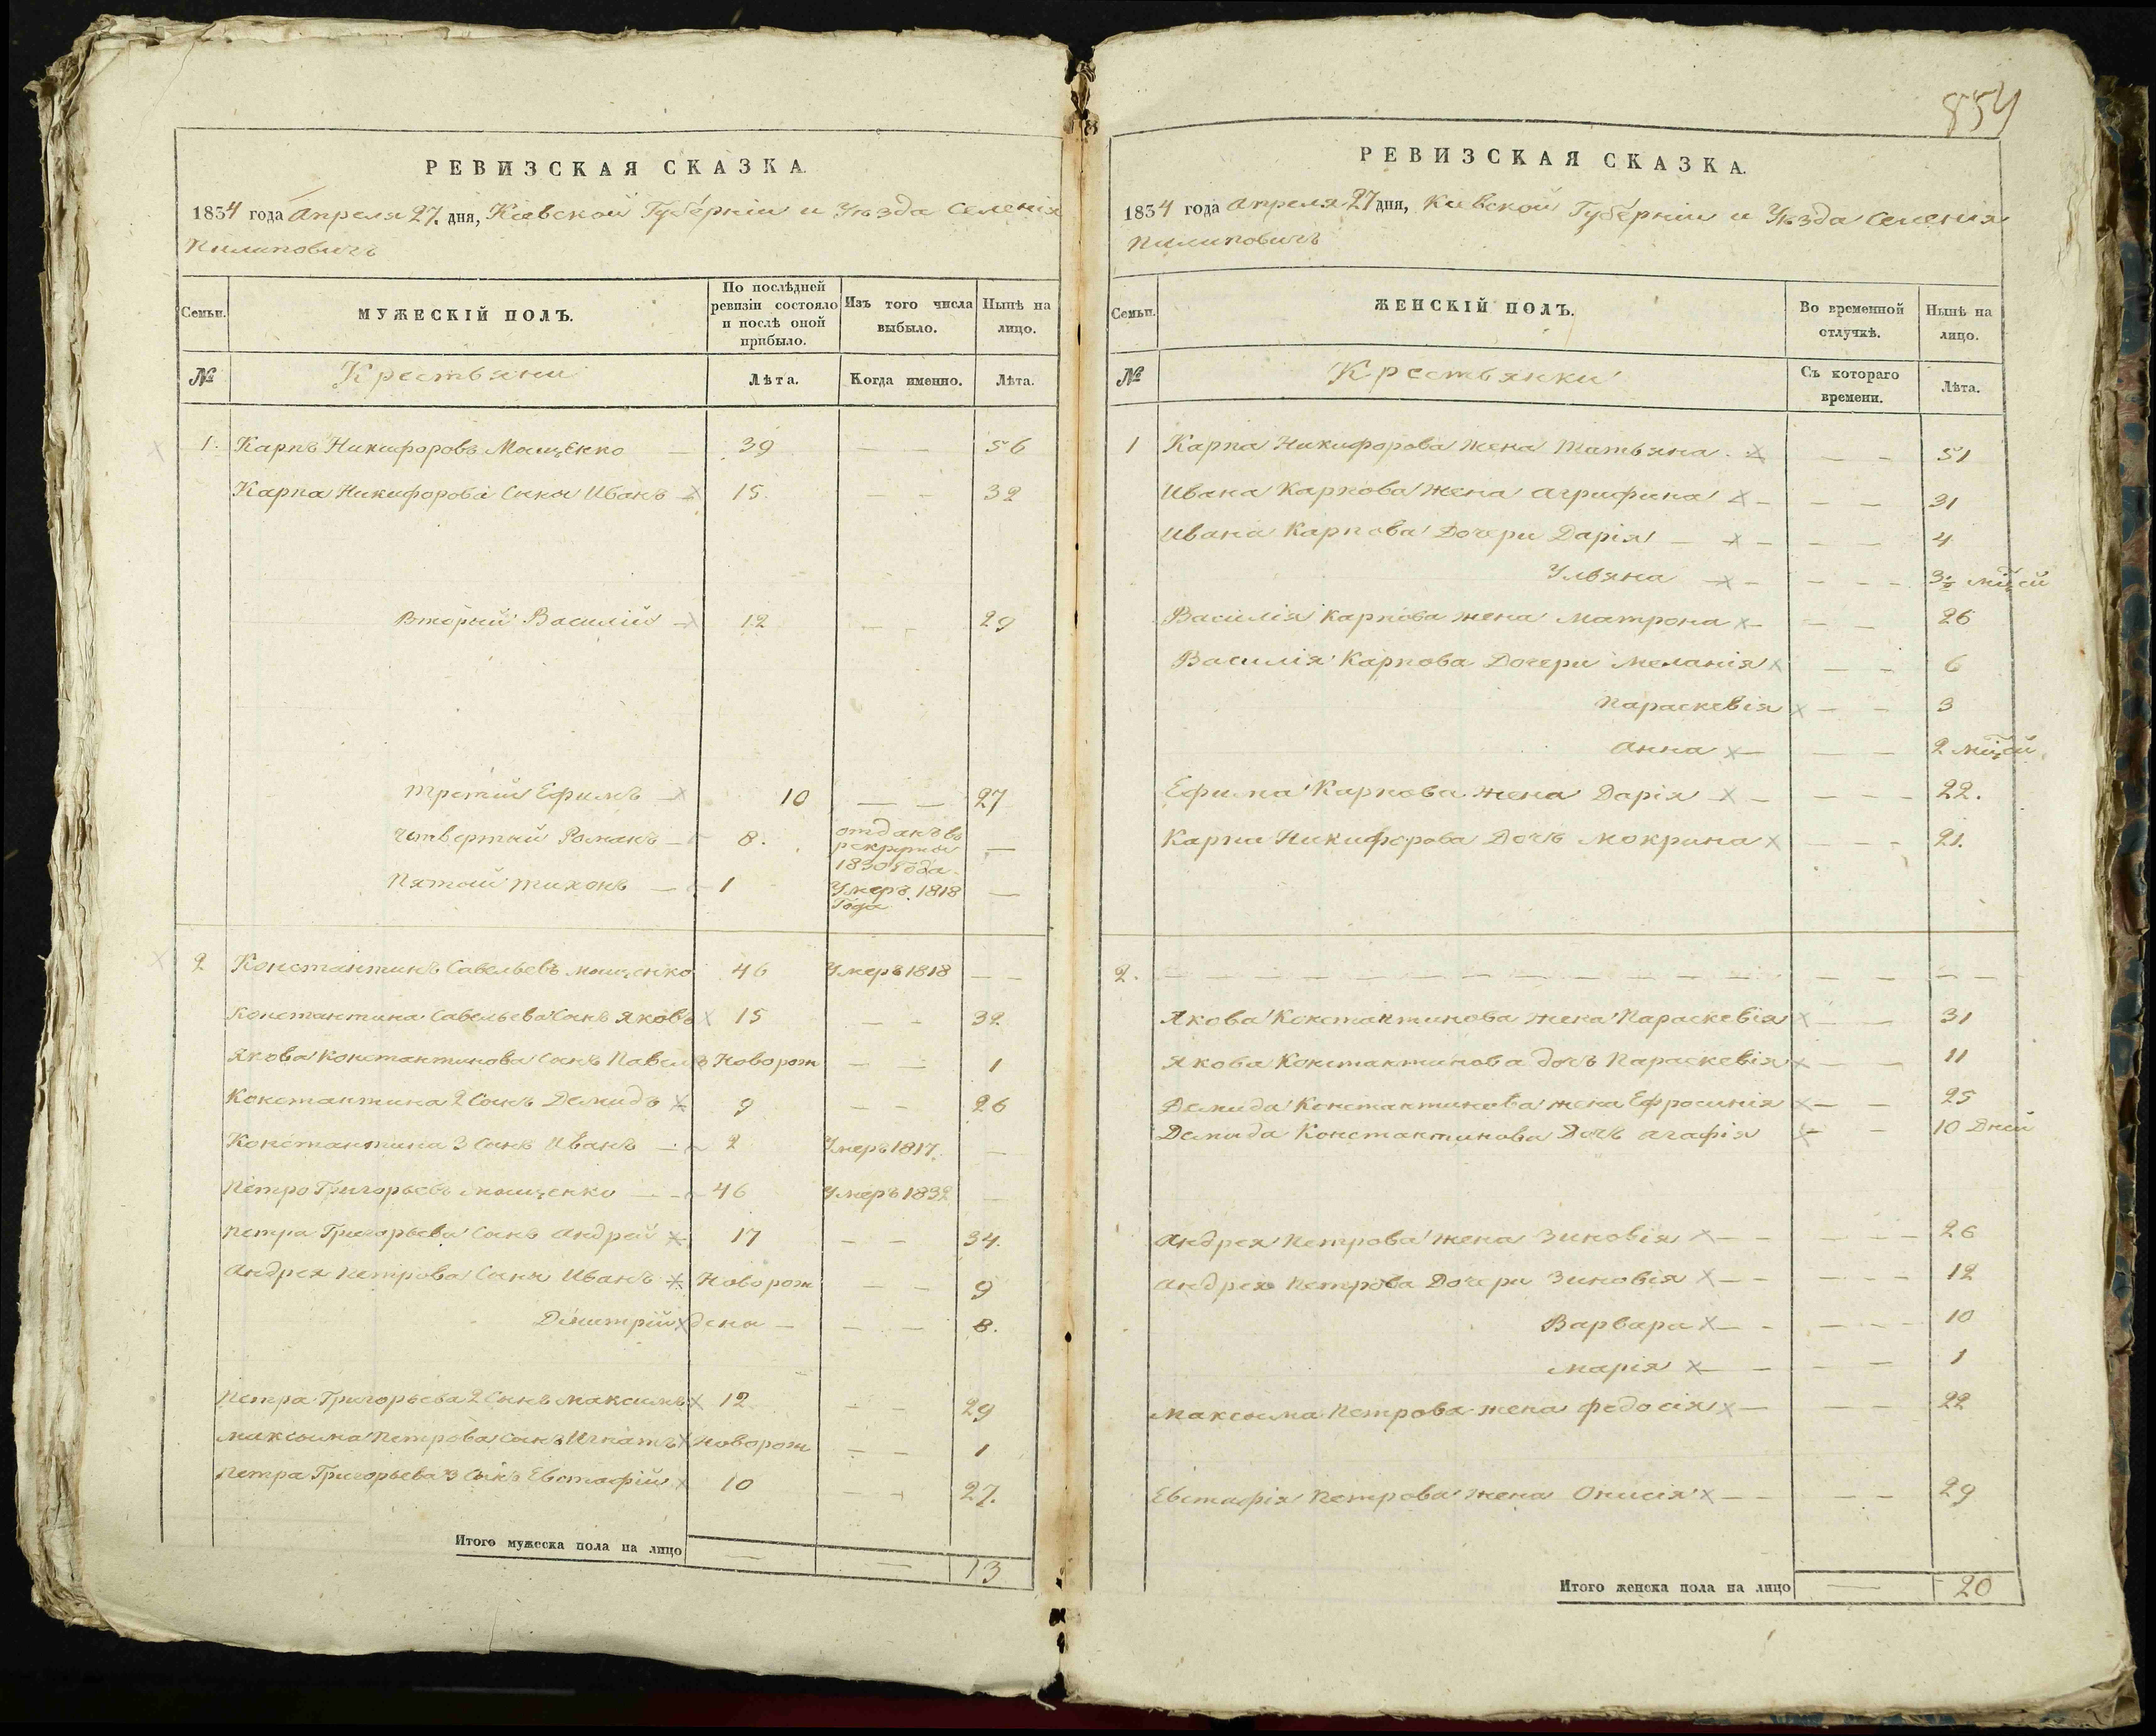 854
РЕВИЗСКАЯ СКАЗКА.
1834 года Апреля 27 дня, Кіевской Губерніи и Уѣзда Селенія
Пилиповичъ
Семьи.
МУЖЕСКІЙ ПОЛЪ.
По послѣдней
ревизіи состояло
и послѣ оной
прибыло.
Изъ того числа
выбыло.
Нынѣ на
лицо.
№
Крестьяни
Лѣта.
Когда именно.
Лѣта.
1. Карпъ Никифоровъ Мощенко — 39 — — 56
Карпа Никифорова Сыны Иванъ — 15. — — 32
Вторый Василий — 12 — — 29
Третий Ефимъ — 10 — — 27
Четвертий Романъ — 8. отданъ въ
рекруты
1830 Года. —
Пятой Тихонъ — 1 Умеръ 1818
Года —
2 Константинъ Савельевъ Мощенко 46 Умеръ 1818 — —
Константина Савельева Сынъ Яковъ 15 — — 32
Якова Константинова Сынъ Павелъ Новорож — — 1
Константина 2 Сынъ Демидъ 9 — — 26
Константина 3 Сынъ Иванъ — 2 Умеръ 1817. —
Петро Григорьевъ Мощенко — — 46 Умеръ 1832 —
Петра Григорьева Сынъ Андрей 17 — — 34.
Андрея Петрова Сыны Иванъ Новорож — — 9
Димитрий дены — — — 8.
Петра Григорьева 2 Сынъ Максимъ 12 — — 29
Максима Петрова Сынъ Игнатъ Новорож — — 1
Петра Григорьева 3 Сынъ Евстафій 10 — — 27.
Итого мужеска пола на лицо — — 13
РЕВИЗСКАЯ СКАЗКА.
1834 года Апреля 27 дня, Киевской Губерніи и Уѣзда Селенія
Пилиповичъ
Семьи.
ЖЕНСКІЙ ПОЛЪ.
Во временной
отлучкѣ.
Нынѣ на
лицо.
№
Крестьянки
Съ котораго
времени.
Лѣта.
1 Карпа Никифорова жена Татьяна. — — 51
Ивана Карпова жена Агрифина — — — 31
Ивана Карпова Дочери Дарія — — — — 4
Ульяна — — — — 3½ мѣцей
Василія Карпова жена Матрона — — — 26
Василія Карпова Дочери Меланія — — 6
Параскевія — — 3
Анна — — — 2 мѣцей
Ефима Карпова жена Дарія — — — — 22.
Карпа Никифорова Дочь Мокрина — — — 21.
2. — — — — — — — — — — — — — —
Якова Константинова жена Параскевія — — 31
Якова Константинова дочь Параскевія — — 11
Демида Константинова жена Ефросинія — — 25
Демида Константинова Дочь Агафія — — 10 Дней
Андрея Петрова жена Зиновія — — — — — 26
Андрея Петрова Дочери Зиновія — — — — — 12
Варвара — — — — — 10
Марія — — — — 1
Максима Петрова жена Федосія — — — 22
Евстафія Петрова жена Онисія — — — — 29
Итого женска пола на лицо — 20